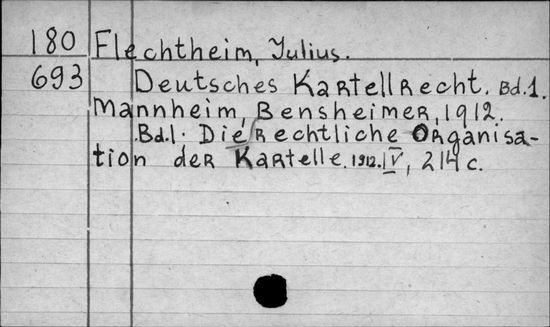 180 Flechtheim, Julius.
693 Deutsches Kartellrecht. Bd.1.
Mannheim, Bensheimer, 1912.
Bd.1. Die rechtliche Organisa-
tion der Kartelle. 1912. IV, 214 c.